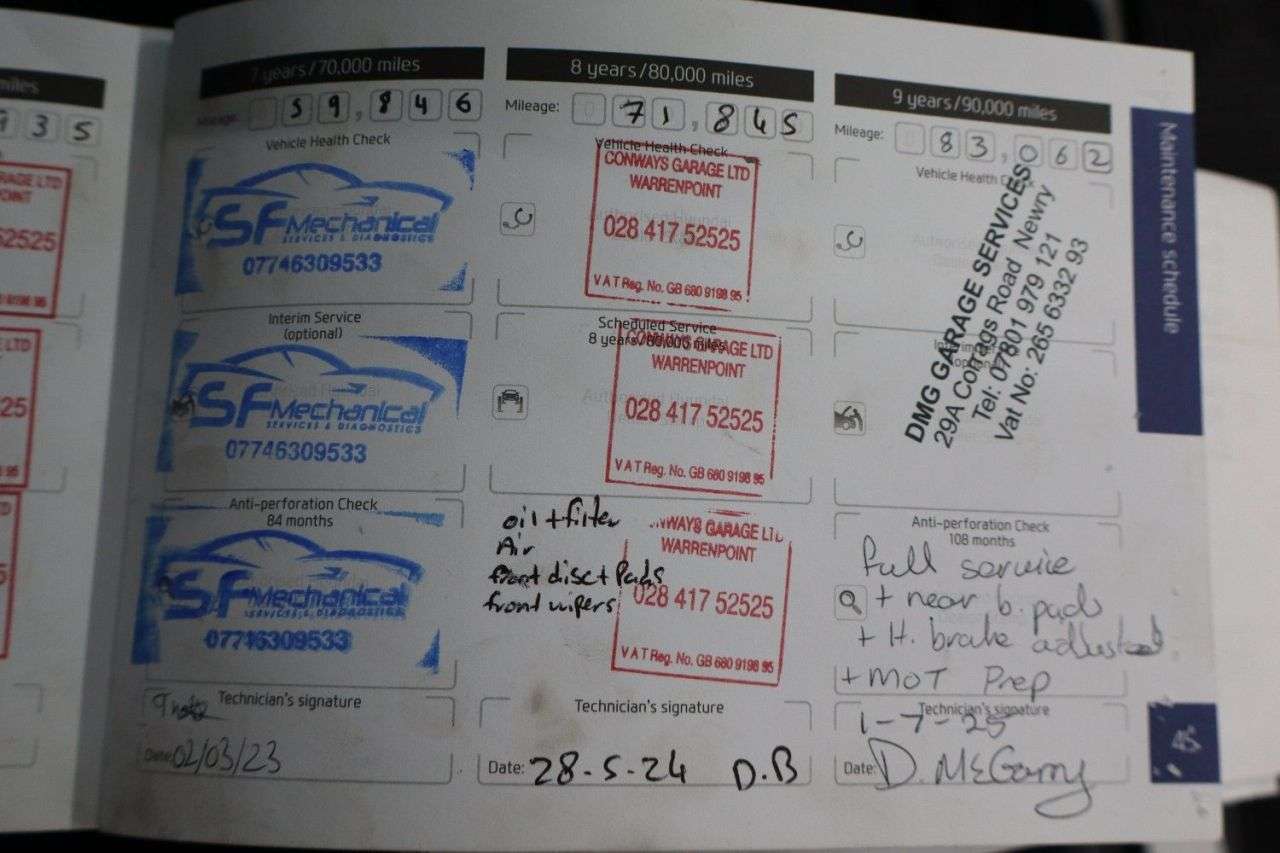 miles
935
RAGE LTD
POINT
52525
9198 95
LTD
25
95
7 years/70,000 miles
Mileage: 59,846
Vehicle Health Check
SF Mechanical
SERVICES & DIAGNOSTICS
07746309533
Interim Service
(optional)
SF Mechanical
SERVICES & DIAGNOSTICS
07746309533
Anti-perforation Check
84 months
SF Mechanical
SERVICES & DIAGNOSTICS
07746309533
Technician's signature
Date: 02/03/23
8 years/80,000 miles
Mileage: 0 71,845
Vehicle Health Check
CONWAYS GARAGE LTD
WARRENPOINT
028 417 52525
VAT Reg. No. GB 680 9198 95
Scheduled Service
8 years/80,000 miles
CONWAYS GARAGE LTD
WARRENPOINT
028 417 52525
VAT Reg. No. GB 680 9198 95
oil + filter
Air
front disc + Pads
front wipers
NWAYS GARAGE LTD
WARRENPOINT
028 417 52525
VAT Reg. No. GB 680 9198 95
Technician's signature
Date: 28-5-24 D.B
9 years/90,000 miles
Mileage: 0 83,062
Vehicle Health Check
DMG GARAGE SERVICES
29A Corrags Road Newry
Tel: 07801 979 121
Vat No: 265 6332 93
Anti-perforation Check
108 months
full service
+ near b. pads
+ H. brake adjusted
+ MOT Prep
Technician's signature
1-7-25
Date: D. McGarry
Maintenance schedule
45